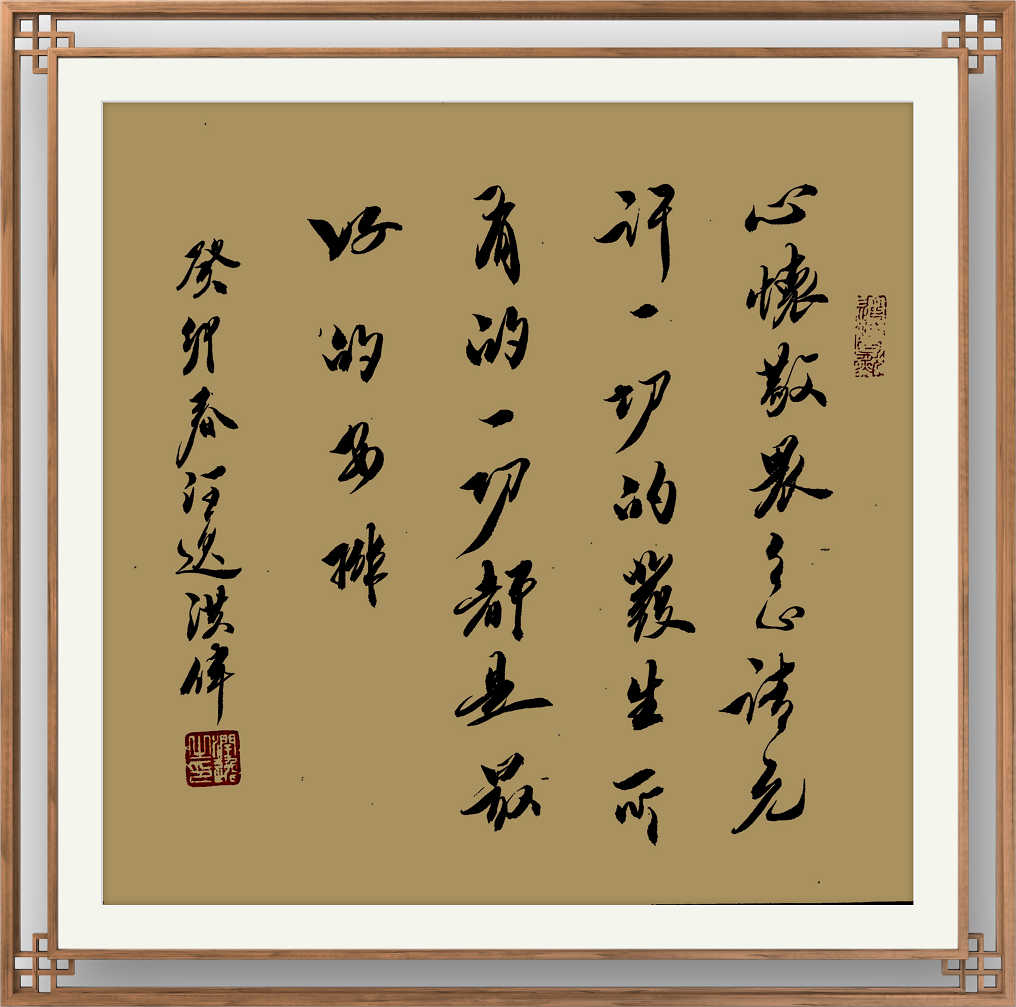 心懷敬畏之心请允
許一切的發生所
有的一切都是最
好的安排
癸卯春汪逸洪偉